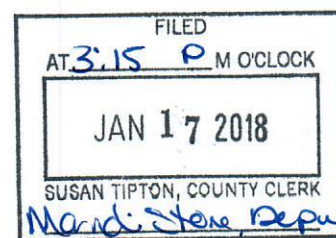 FILED
AT 3:15 P M O'CLOCK
JAN 17 2018
SUSAN TIPTON, COUNTY CLERK
Mandi Stone, Depu